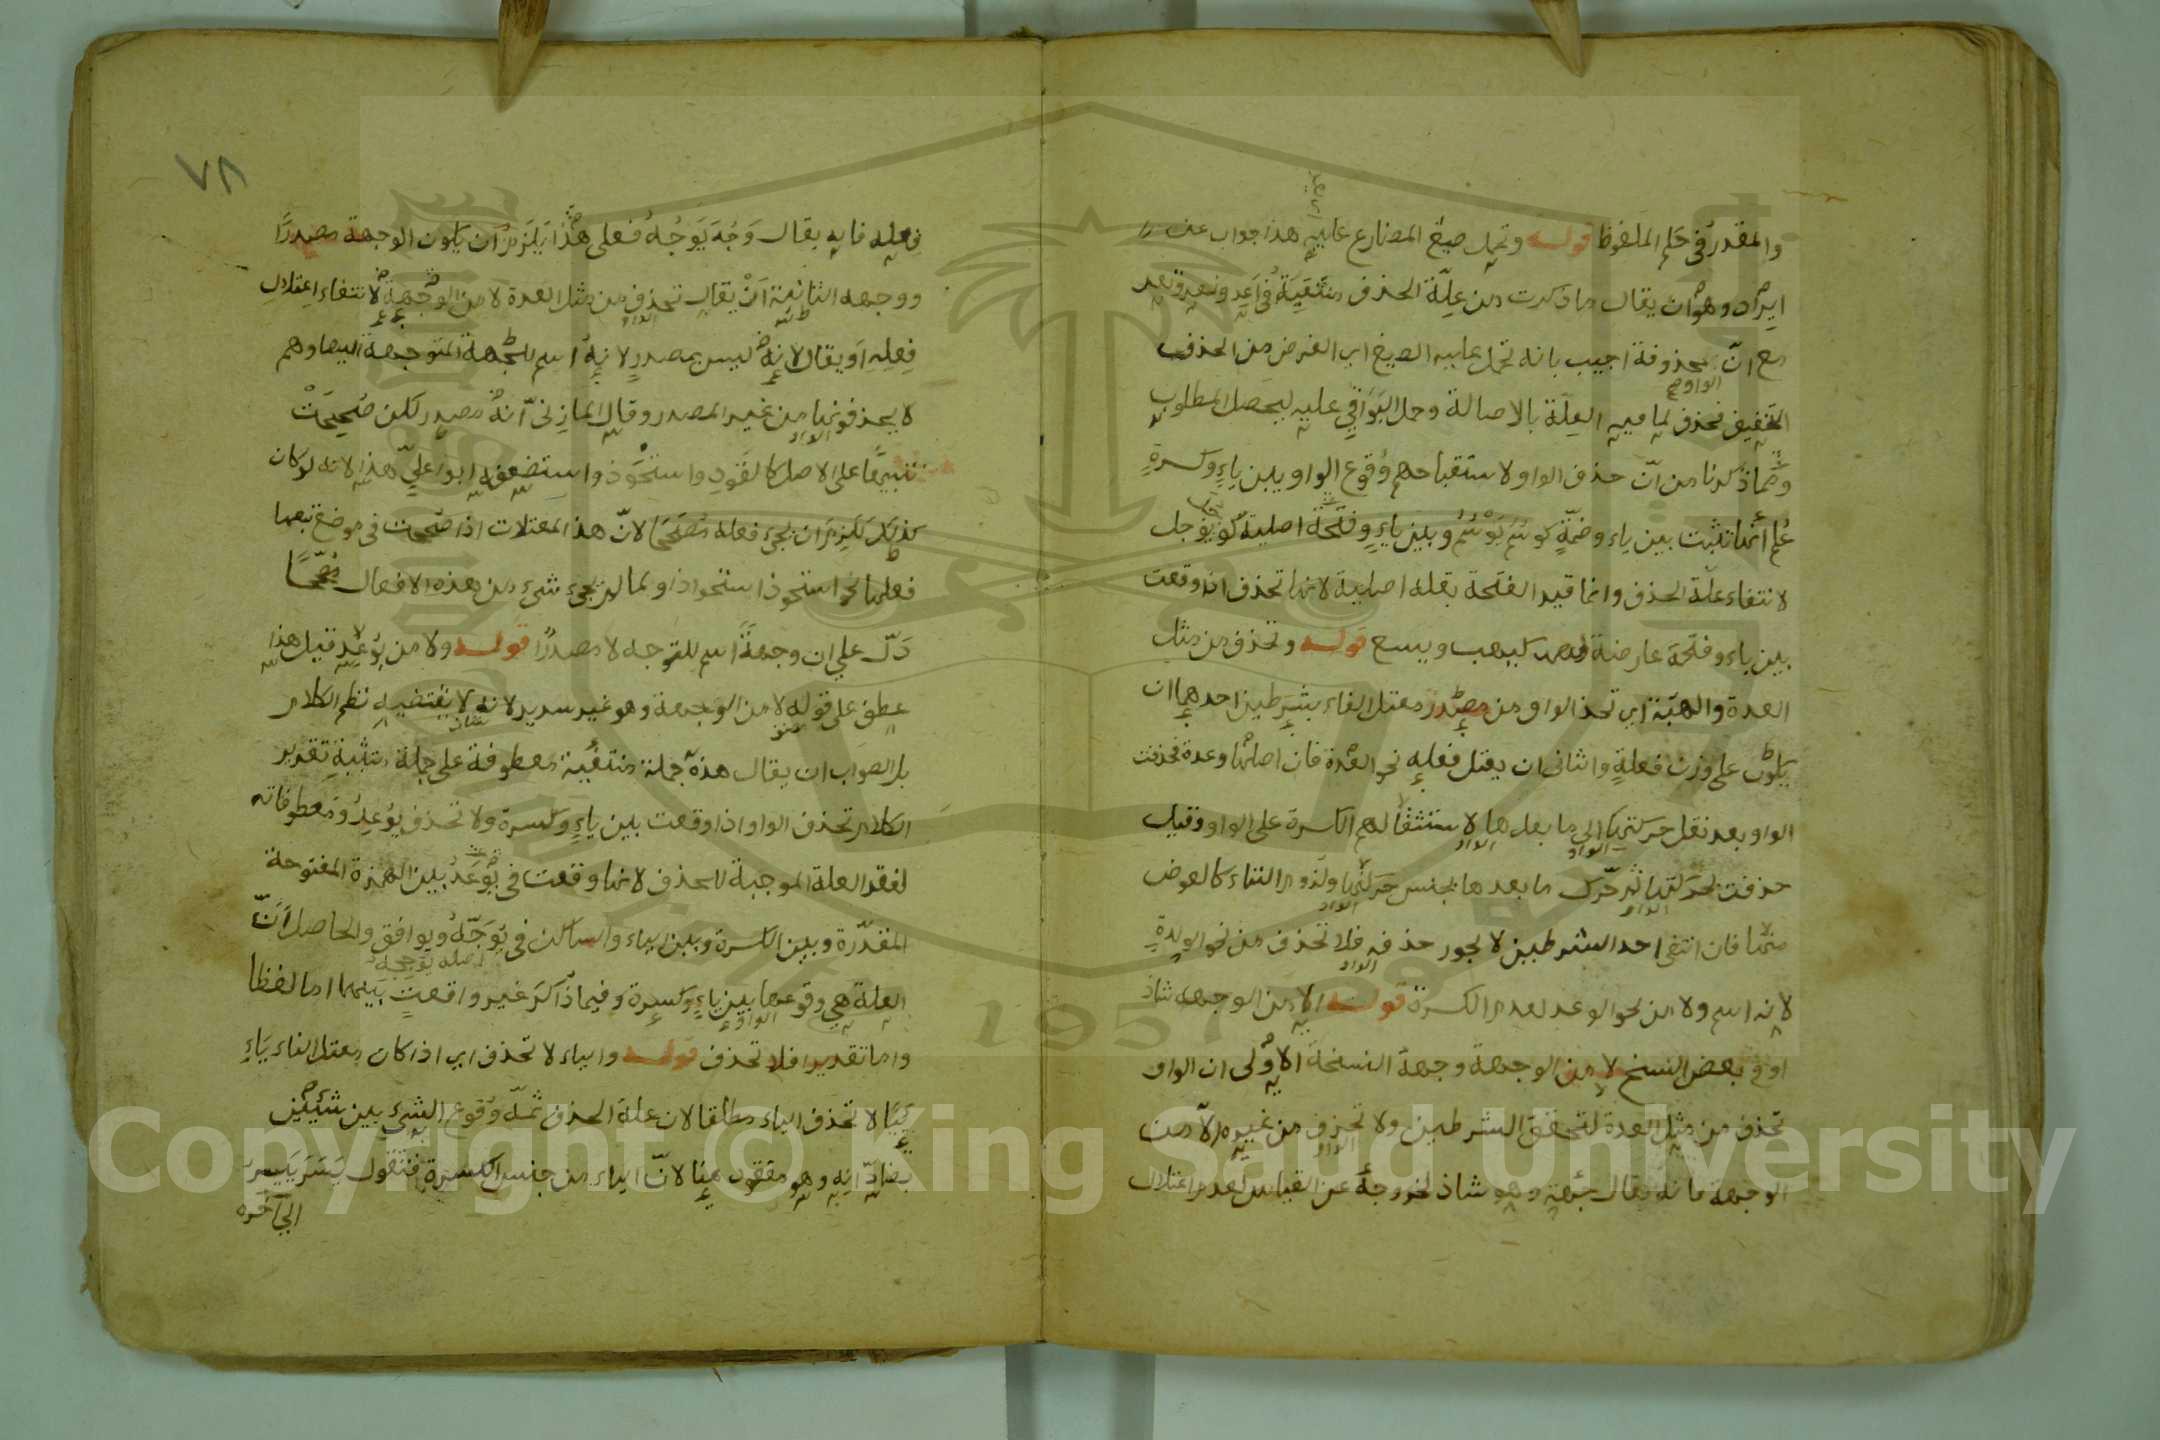 والمقدر في حكم الملفوظ قوله وتحمل صيغ المضارع عليه هذا جواب عن
ايراد وهو ان يقال ما ذكرت من علة الحذف منتفية في اعد ونعد وتعد
مع انّ الواو محذوفة اجيب بانه تحمل عليه الصيغ اي الغرض من الحذف
التخفيف فحذف لما فيه العلة بالاصالة وحمل البواقي عليه ليحصل المطلوب
ومما ذكرنا من انّ حذف الواو لاستقباحهم وقوع الواو بين ياء وكسرة
علم انها تثبت بين ياء وضمة كوسم يوسم وبين ياء وفتحة اصلية كوجل يوجل
لانتفاء علة الحذف وانما قيد الفتحة بقوله اصلية لانها تحذف اذا وقعت
بين ياء وفتحة عارضة كيهب ويسع قوله وتحذف من مثل
العدة والهبة اي تحذف الواو من مصدر معتل الفاء بشرطين احدهما ان
يكون على وزن فعلة والثاني ان يعتل فعله نحو العدة فان اصلها وعدة فحذفت
الواو بعد نقل حركتها الى ما بعدها لاستثقالهم الكسرة على الواو وقيل
حذفت بحركتها ثم حرّك ما بعدها بجنس حركتها ولزوم التاء كالعوض
منها فان انتفى احد الشرطين لا يجوز حذفه فلا تحذف من نحو الولدة
لانه اسم ولا من نحو الوعد لعدم الكسرة قوله لا من الوجهة شاذ
او في بعض النسخ لا من الوجهة وجهة النسخة الاولى ان الواو
تحذف من مثل العدة لتحقق الشرطين ولا تحذف من غيره الا من
الوجهة فانه يقال جهة وهو شاذ لخروجه عن القياس لعدم اعتلال
٧٨
فعله فانه يقال وَجُهَ يَوْجُهُ فعلى هذا يلزم ان يكون الوجهة مصدرًا
ووجهه الثانية ان يقال تحذف من مثل العدة لا من الوجهة لانتفاء اعتلال
فعله او يقال لانه ليس بمصدر لانه اسم للجهة المتوجهة اليها وهم
لا يحذفونها من غير المصدر وقال المازني انه مصدر لكن صحّحت
تنبيهًا على الاصل كالقود واستحوذ واستضعفه ابو علي هذا لانه لو كان
كذلك للزم ان يجيء فعله مصححا لانّ هذا المعتلات اذا صحت في موضع تبعها
فعلها نحو استحوذ استحواذا ولما لم يجيء شيء من هذه الافعال مصححًا
دلّ على ان وجهة اسم للتوجه لا مصدرًا قوله ولا من يوعد قيل هذا
عطف على قوله لا من الوجهة وهو غير سديد لانه لا يقتضيه نظم الكلام
بل الصواب ان يقال هذه جملة منتفية معطوفة على جملة مثبتة تقدير
الكلام تحذف الواو اذا وقعت بين ياء وكسرة ولا تحذف يوعد ومعطوفاته
لفقد العلة الموجبة للحذف لانها وقعت في يوعد بين الهمزة المفتوحة
المقدّرة وبين الكسرة وبين الياء والساكن في يوجّه ويوافق والحاصل انّ
اصله يؤوجه
العلة هي وقوعها بين ياء وكسرة وفيما ذكر غير واقعت بينهما اما لفظا
واما تقديرا فلا تحذف قوله والياء لا تحذف اي اذا كان معتل الفاء ياء
لا تحذف الياء مطلقا لان علة الحذف ثمة وقوع الشيء بين شيئين
يضادانه وهو مفقود هنا لانّ الياء من جنس الكسرة فتقول يسر ييسر
الى آخره
Copyright © King Saud University
1957